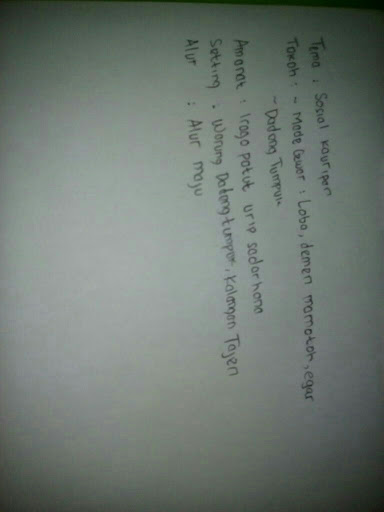 Tema : Sosial kauripan
Tokoh : - Made Gewar : Loba, demen mamotoh, egar
- Dadong Tumpuk
Amanat : Iraga patut urip sadarhana
Setting : Warung Dadong tumpuk, Kalangan Tajen
Alur : Alur maju